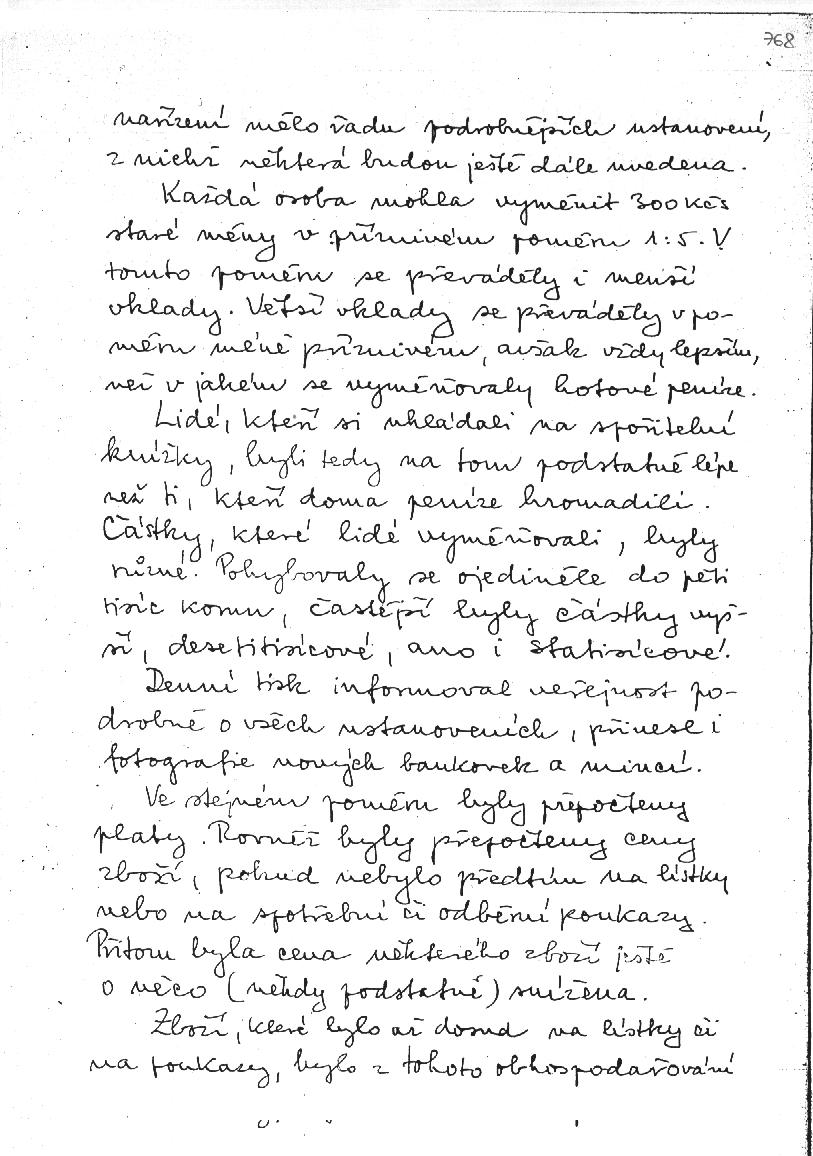 768
nařízení mělo řadu podrobnějších ustanovení,
z nichž některá budou ještě dále uvedena.
Každá osoba mohla vyměnit 300 Kčs
staré měny v příznivém poměru 1:5. V
tomto poměru se převáděly i menší
vklady. Větší vklady se převáděly v po-
měru méně příznivém, avšak vždy lepším,
než v jakém se vyměňovaly hotové peníze.
Lidé, kteří si ukládali na spořitelní
knížky, byli tedy na tom podstatně lépe
než ti, kteří doma peníze hromadili.
Částky, které lidé vyměňovali, byly
různé. Pohybovaly se ojediněle do pěti
tisíc korun, častější byly částky vyš-
ší, desetitisícové, ano i statisícové.
Denní tisk informoval veřejnost po-
drobně o všech ustanoveních, přinesl i
fotografie nových bankovek a mincí.
Ve stejném poměru byly přepočteny
platy. Rovněž byly přepočteny ceny
zboží, pokud nebylo předtím na lístky
nebo na spotřební či odběrní poukazy.
Přitom byla cena některého zboží ještě
o něco (někdy podstatně) snížena.
Zboží, které bylo až dosud na lístky či
na poukazy, bylo z tohoto obhospodařování